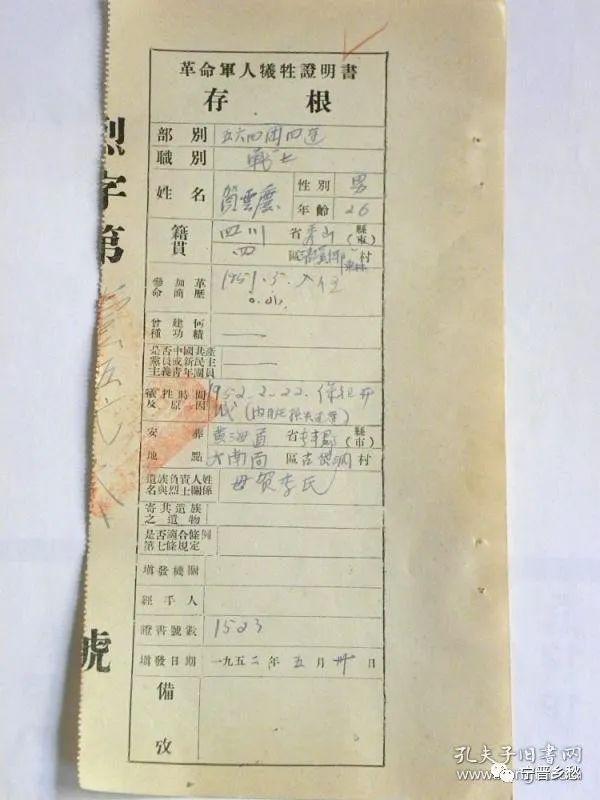 革命軍人犧牲證明書
存 根
部別 五六四团四连
職別 戰士
姓名 賀雲慶
性別 男
年齡 26
籍貫 四川 省 秀山 縣(市)
四 區 村
參加革命簡歷 1951.5.入伍
曾建何種功績 ——
是否中國共產黨員或新民主主義青年團員 ——
犧牲時間及原因 1952.2.22.
安葬地點 黄海道 省 縣(市)
大南面 區 村
遺族負責人姓名與烈士關係 母 賀李氏
寄其遺族之遺物
是否適合條例第七條規定
填發機關
經手人
證書號數 1523
填發日期 一九五二年五月卅日
備攷
烈字第
號
孔夫子旧书网
宁晋乡愁